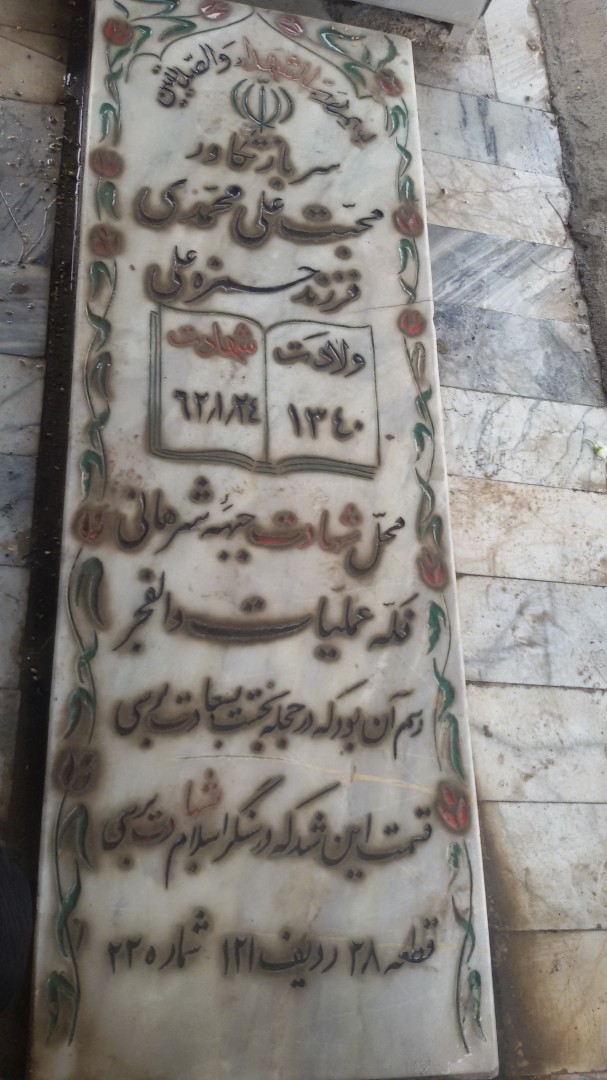 بسم رب الشهداء والصدیقین
سرباز تکاور
محبت علی محمدی
فرزند حمزه علی
ولادت شهادت
۱۳۴۰ ۶۲/۱/۲۴
محل شهادت جبهه شرهانی
عملیات والفجر
رسم آن بود که در حجله بخت بسعادت برسی
قسمت این شد که در سنگر اسلام شهادت برسی
قطعه ۲۸ ردیف ۱۲۱ شماره ۲۲